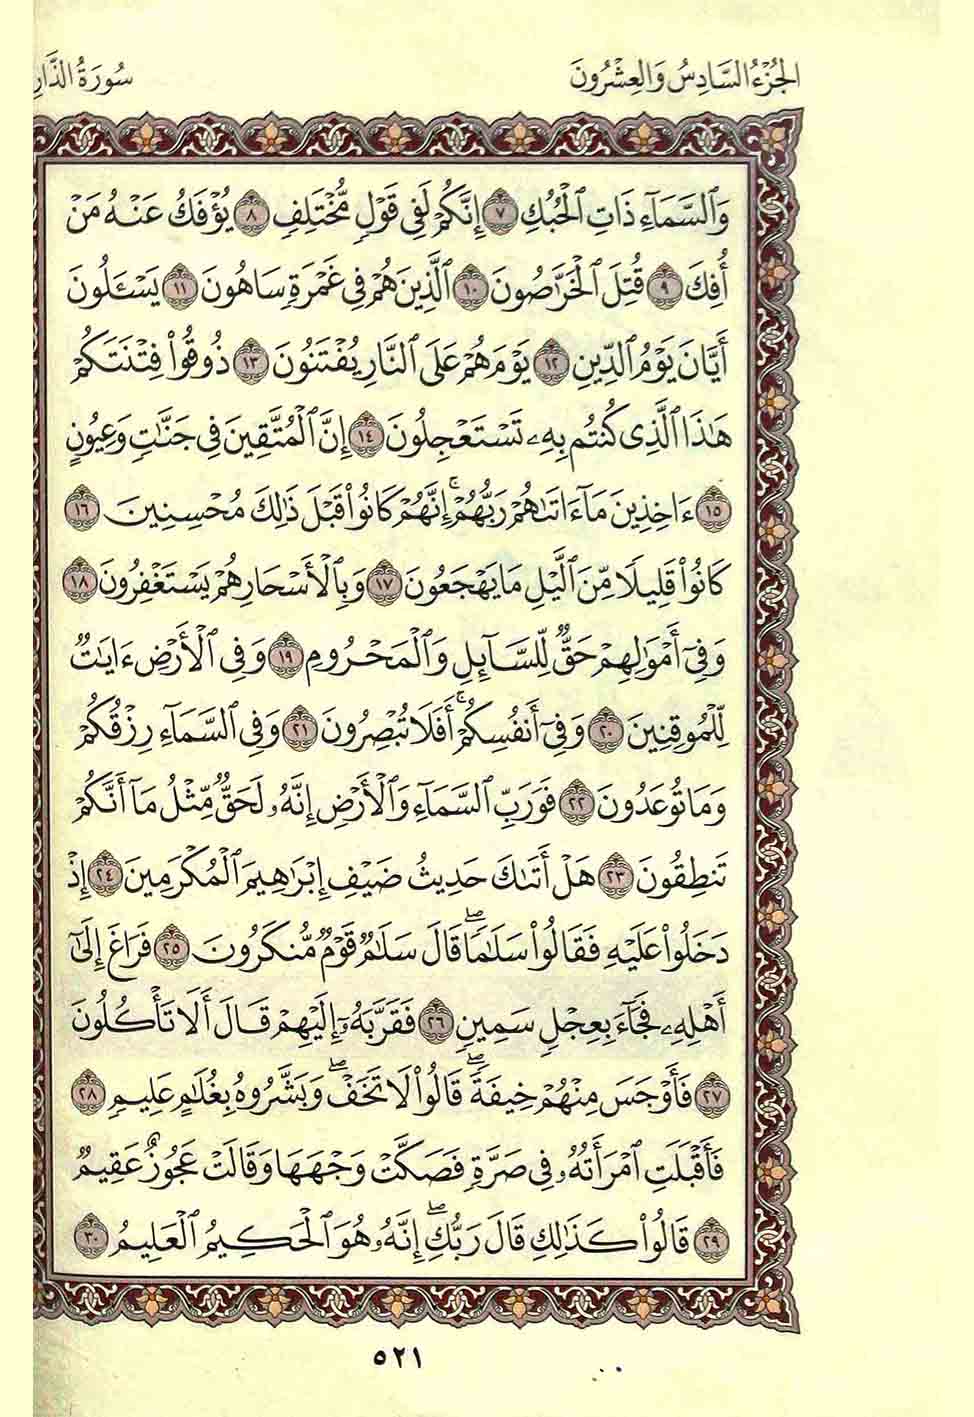 الجُزْءُ السَّادِسُ وَالعِشْرُونَ
سُورَةُ الذَّارِ
وَٱلسَّمَآءِ ذَاتِ ٱلْحُبُكِ ٧ إِنَّكُمْ لَفِى قَوْلٍ مُّخْتَلِفٍ ٨ يُؤْفَكُ عَنْهُ مَنْ
أُفِكَ ٩ قُتِلَ ٱلْخَرَّٰصُونَ ١٠ ٱلَّذِينَ هُمْ فِى غَمْرَةٍ سَاهُونَ ١١ يَسْـَٔلُونَ
أَيَّانَ يَوْمُ ٱلدِّينِ ١٢ يَوْمَ هُمْ عَلَى ٱلنَّارِ يُفْتَنُونَ ١٣ ذُوقُوا۟ فِتْنَتَكُمْ
هَٰذَا ٱلَّذِى كُنتُم بِهِۦ تَسْتَعْجِلُونَ ١٤ إِنَّ ٱلْمُتَّقِينَ فِى جَنَّٰتٍ وَعُيُونٍ
١٥ ءَاخِذِينَ مَآ ءَاتَىٰهُمْ رَبُّهُمْ ۚ إِنَّهُمْ كَانُوا۟ قَبْلَ ذَٰلِكَ مُحْسِنِينَ ١٦
كَانُوا۟ قَلِيلًا مِّنَ ٱلَّيْلِ مَا يَهْجَعُونَ ١٧ وَبِٱلْأَسْحَارِ هُمْ يَسْتَغْفِرُونَ ١٨
وَفِىٓ أَمْوَٰلِهِمْ حَقٌّ لِّلسَّآئِلِ وَٱلْمَحْرُومِ ١٩ وَفِى ٱلْأَرْضِ ءَايَٰتٌ
لِّلْمُوقِنِينَ ٢٠ وَفِىٓ أَنفُسِكُمْ ۚ أَفَلَا تُبْصِرُونَ ٢١ وَفِى ٱلسَّمَآءِ رِزْقُكُمْ
وَمَا تُوعَدُونَ ٢٢ فَوَرَبِّ ٱلسَّمَآءِ وَٱلْأَرْضِ إِنَّهُۥ لَحَقٌّ مِّثْلَ مَآ أَنَّكُمْ
تَنطِقُونَ ٢٣ هَلْ أَتَىٰكَ حَدِيثُ ضَيْفِ إِبْرَٰهِيمَ ٱلْمُكْرَمِينَ ٢٤ إِذْ
دَخَلُوا۟ عَلَيْهِ فَقَالُوا۟ سَلَٰمًا ۖ قَالَ سَلَٰمٌ قَوْمٌ مُّنكَرُونَ ٢٥ فَرَاغَ إِلَىٰٓ
أَهْلِهِۦ فَجَآءَ بِعِجْلٍ سَمِينٍ ٢٦ فَقَرَّبَهُۥٓ إِلَيْهِمْ قَالَ أَلَا تَأْكُلُونَ
٢٧ فَأَوْجَسَ مِنْهُمْ خِيفَةً ۖ قَالُوا۟ لَا تَخَفْ ۖ وَبَشَّرُوهُ بِغُلَٰمٍ عَلِيمٍ ٢٨
فَأَقْبَلَتِ ٱمْرَأَتُهُۥ فِى صَرَّةٍ فَصَكَّتْ وَجْهَهَا وَقَالَتْ عَجُوزٌ عَقِيمٌ
٢٩ قَالُوا۟ كَذَٰلِكِ قَالَ رَبُّكِ ۖ إِنَّهُۥ هُوَ ٱلْحَكِيمُ ٱلْعَلِيمُ ٣٠
٥٢١